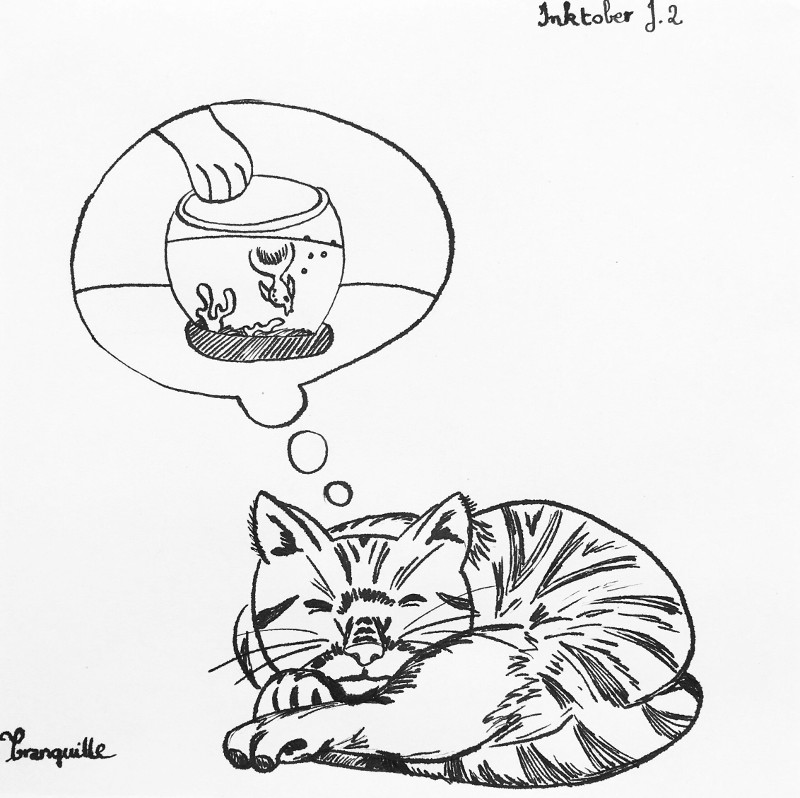 Inktober J.2
Tranquille